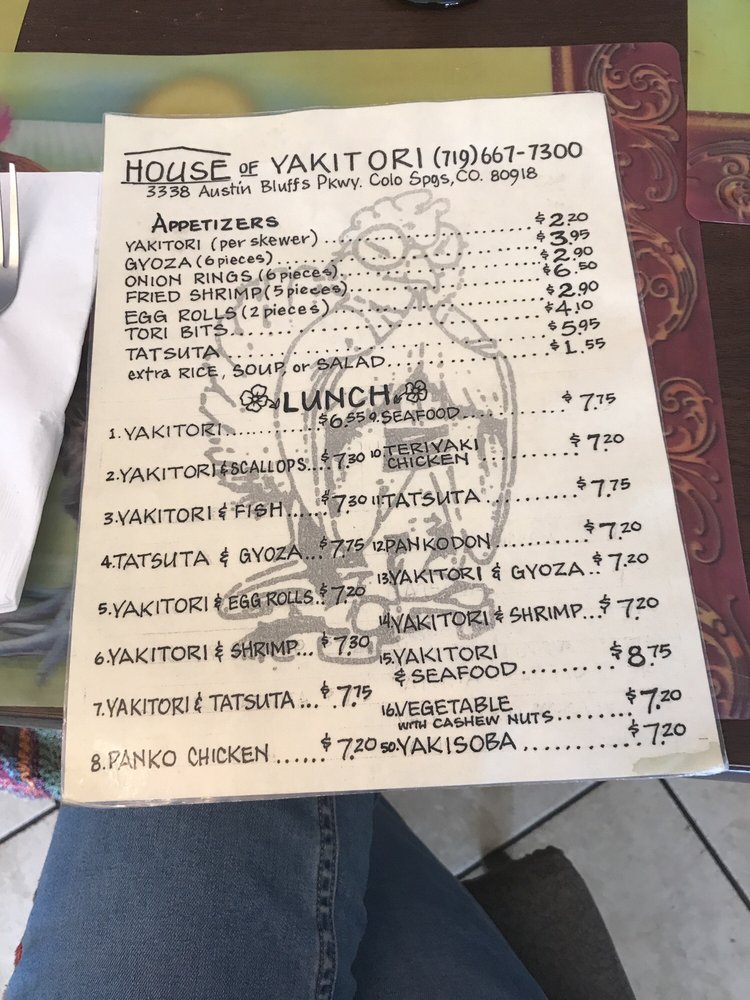 HOUSE OF YAKITORI (719) 667-7300
3338 Austin Bluffs Pkwy. Colo Spgs, CO. 80918
APPETIZERS
YAKITORI (per skewer) $2.20
GYOZA (6 pieces) $3.95
ONION RINGS (6 pieces) $2.90
FRIED SHRIMP (5 pieces) $6.50
EGG ROLLS (2 pieces) $2.90
TORI BITS $4.10
TATSUTA $5.95
extra RICE, SOUP, or SALAD $1.55
LUNCH
1. YAKITORI $6.55
2. YAKITORI & SCALLOPS $7.30
3. YAKITORI & FISH $7.30
4. TATSUTA & GYOZA $7.75
5. YAKITORI & EGG ROLLS $7.20
6. YAKITORI & SHRIMP $7.30
7. YAKITORI & TATSUTA $7.75
8. PANKO CHICKEN $7.20
9. SEAFOOD $7.75
10. TERIYAKI
CHICKEN $7.20
11. TATSUTA $7.75
12. PANKODON $7.20
13. YAKITORI & GYOZA $7.20
14. YAKITORI & SHRIMP $7.20
15. YAKITORI
& SEAFOOD $8.75
16. VEGETABLE
WITH CASHEW NUTS $7.20
50. YAKISOBA $7.20